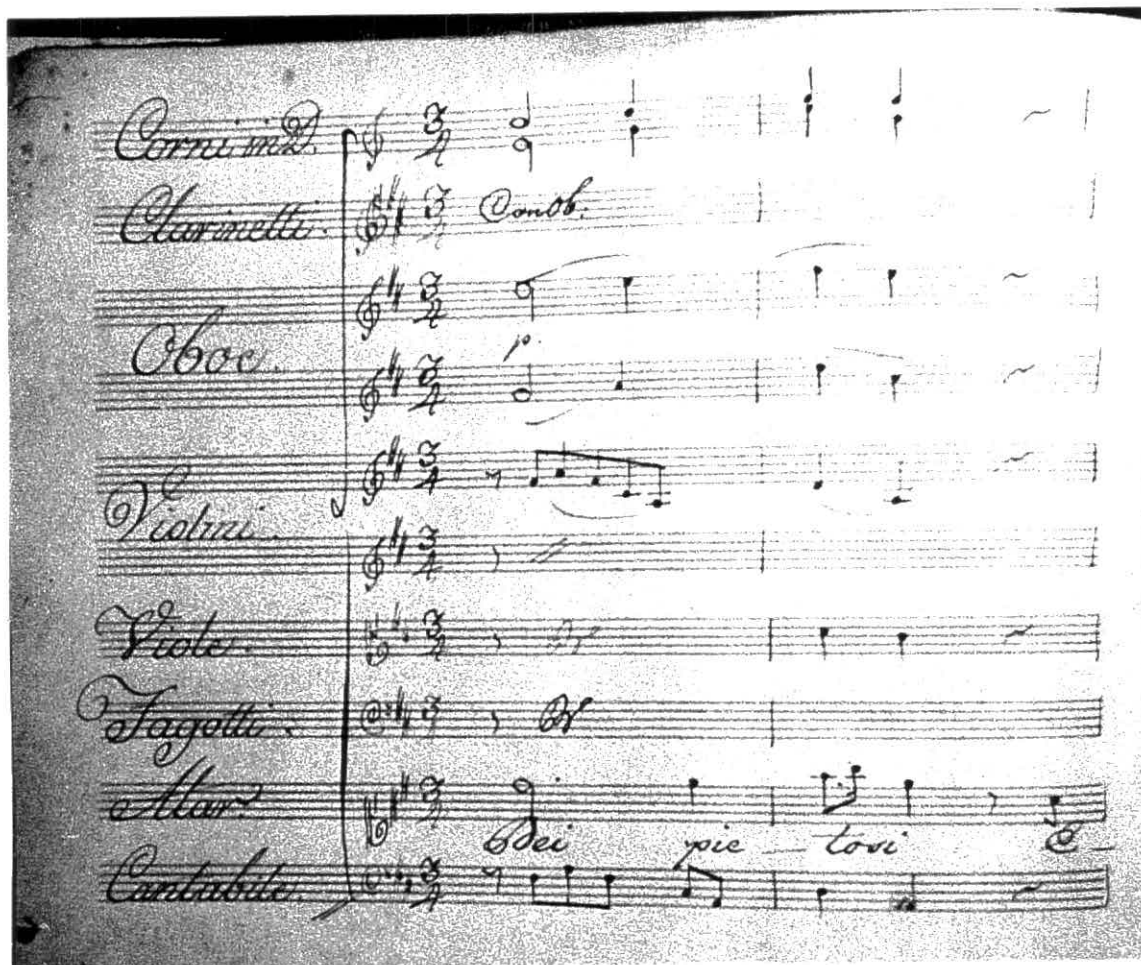 Corni in D.
Clarinetti. Con Ob.
Oboe.
p.
Violini.
Viole.
Fagotti.
Atar.
Dei pie tosi
Cantabile.